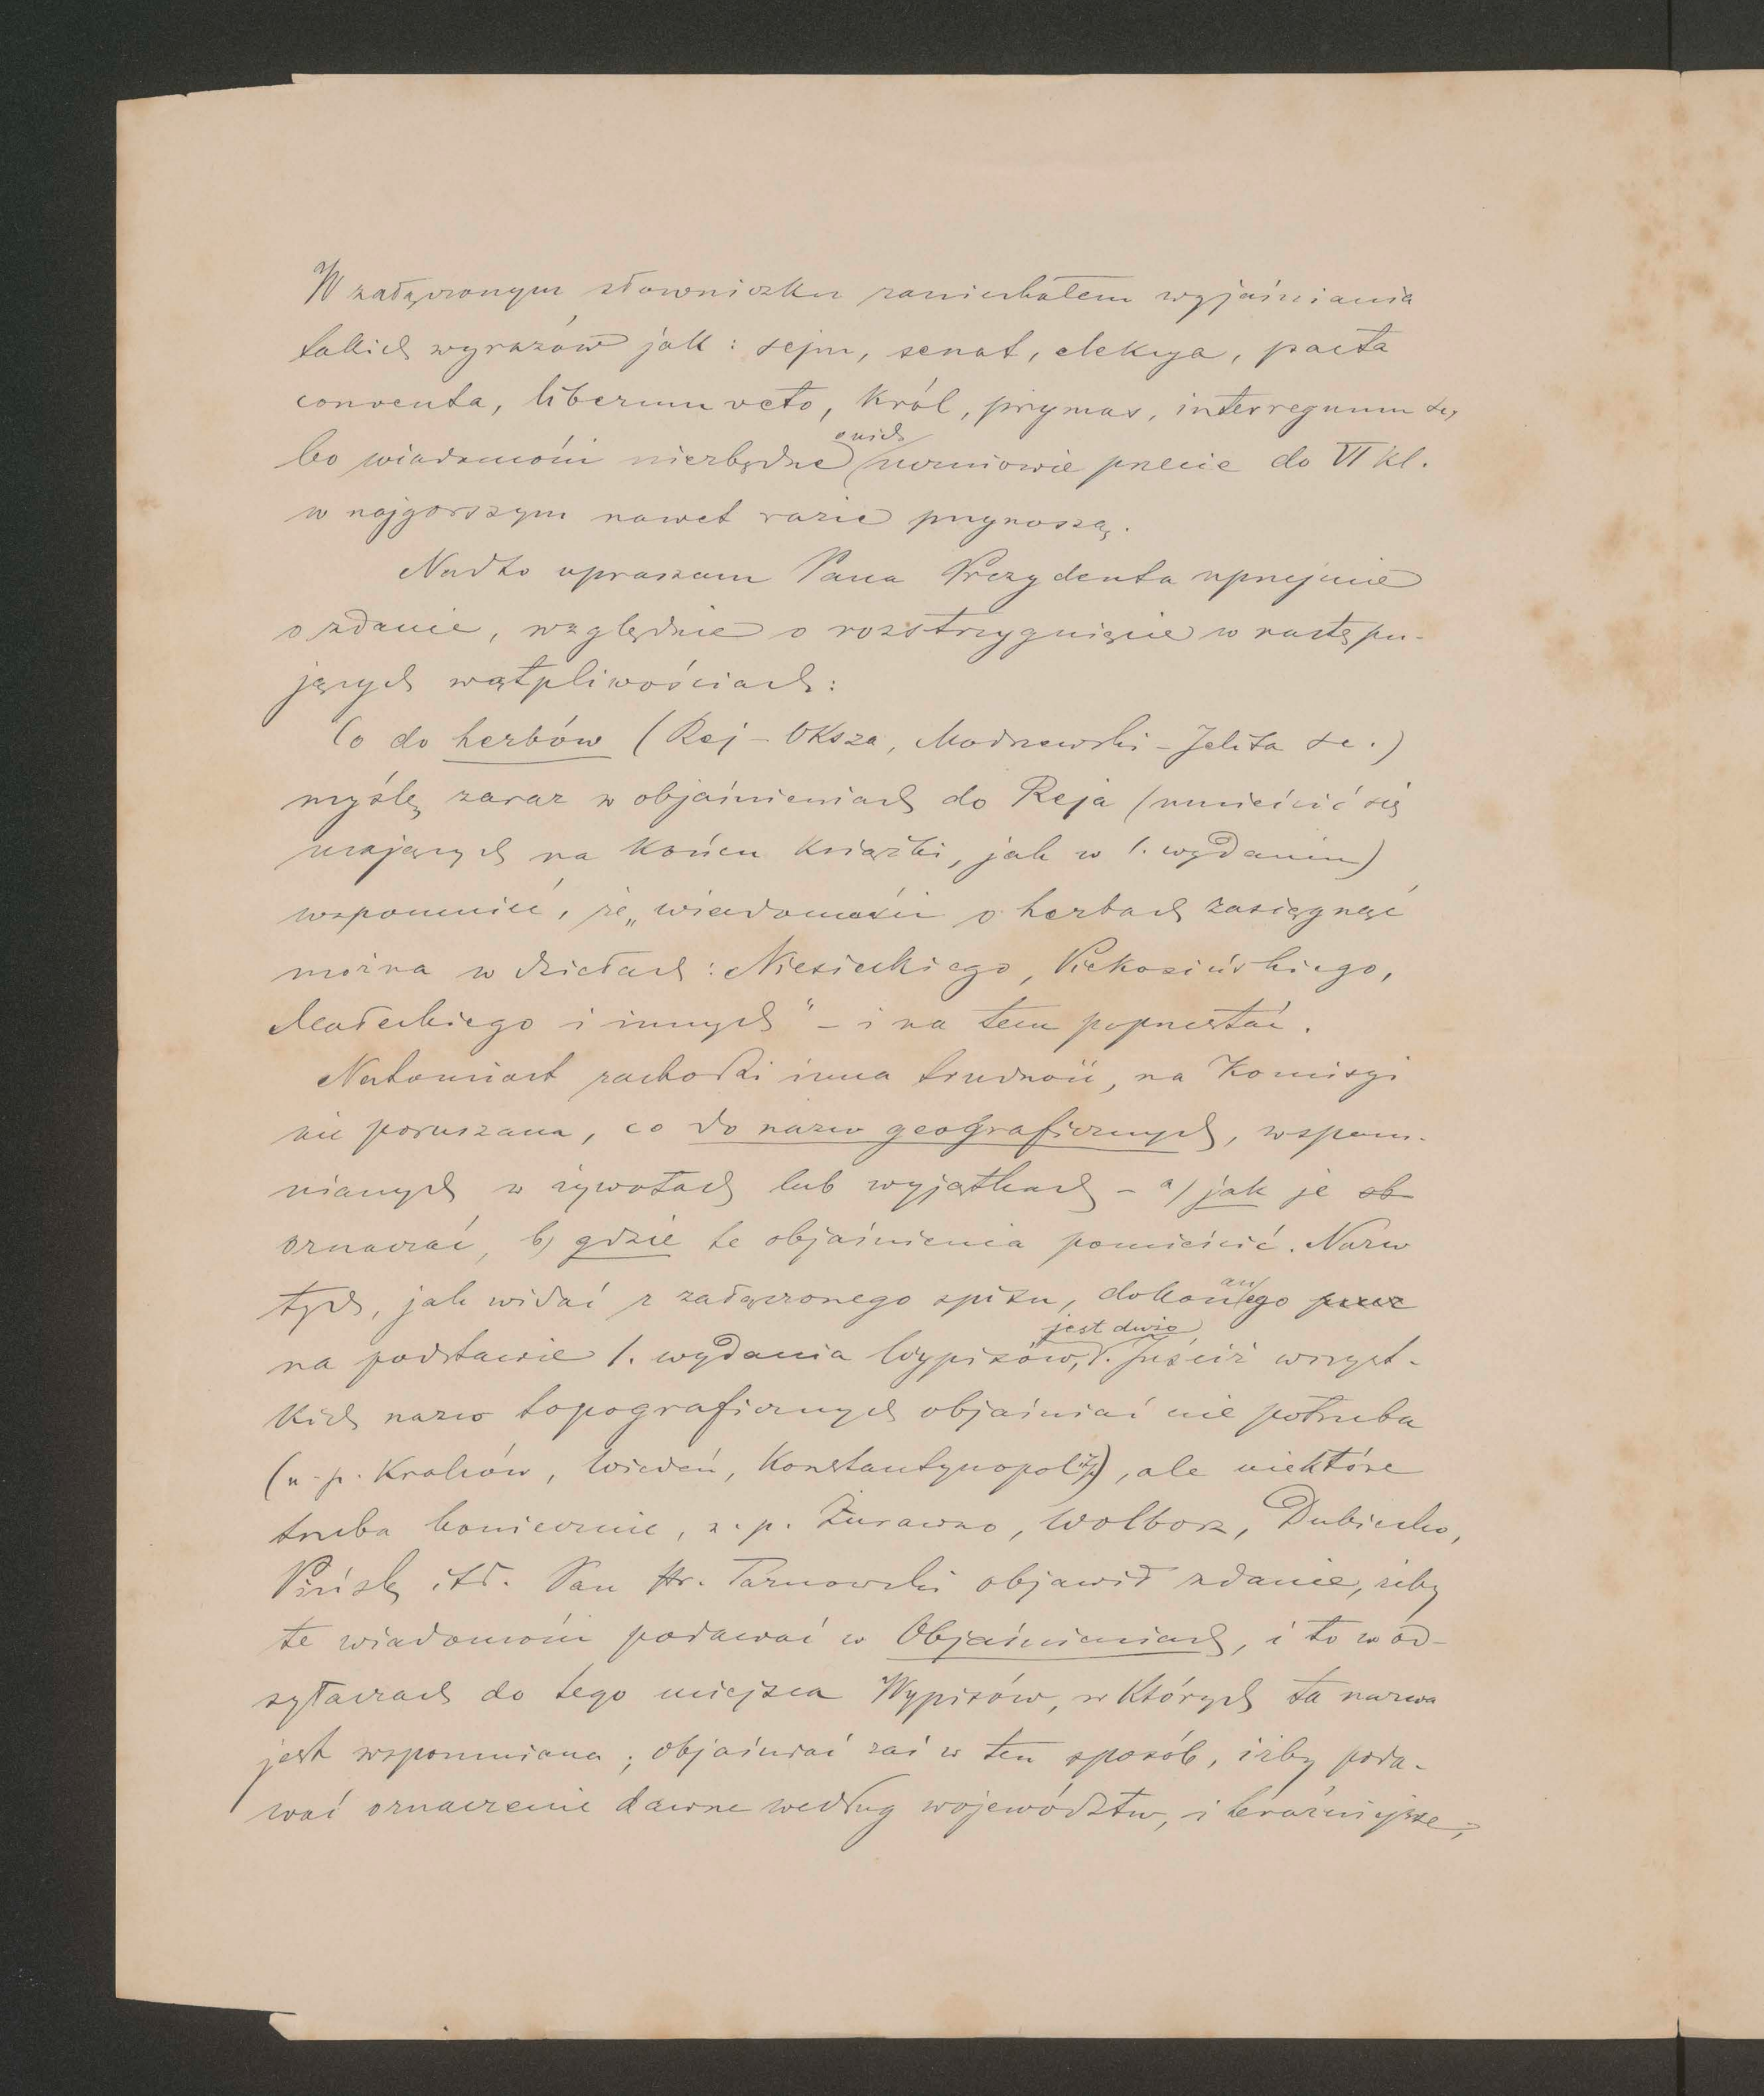 W załączonym słowniczku zaniechałem wyjaśniania
takich wyrazów jak: sejm, senat, elekcya, pacta
conventa, liberum veto, król, prymas, interregnum &c,
bo wiadomości niezbędne o nich uczniowie przecie do VI kl.
w najgorszym nawet razie przynoszą.
Nadto upraszam Pana Prezydenta uprzejmie
o zdanie, względnie o rozstrzygnięcie w następu-
jących wątpliwościach:
Co do herbów (Rej – Oksza, Modrzewski – Jelita &c.)
myślę zaraz w objaśnieniach do Reja (umieścić się
mających na końcu książki, jak w 1. wydaniu)
wspomnieć, że „wiadomości o herbach zasięgnąć
można w dziełach: Niesieckiego, Piekosińskiego,
Małeckiego i innych" – i na tem poprzestać.
Natomiast zachodzi inna trudność, na Komisyi
nie poruszana, co do nazw geograficznych, wspom-
nianych w żywotach lub wyjątkach – a) jak je ob
oznaczać, b) gdzie te objaśnienia pomieścić. Nazw
tych, jak widać z załączonego spisu, dokonanego przez
na podstawie 1. wydania Wypisów, jest dużo. Juścić wszyst-
kich nazw topograficznych objaśniać nie potrzeba
(n. p. Kraków, Wiedeń, Konstantynopol itp), ale niektóre
trzeba koniecznie, n. p. Żurawno, Wolborz, Dubiecko,
Pińsk itd. Pan Hr. Tarnowski objawił zdanie, żeby
te wiadomości podawać w Objaśnieniach, i to w od-
syłaczach do tego miejsca Wypisów, w których ta nazwa
jest wspomniana; objaśniać zaś w ten sposób, iżby poda-
wać oznaczenie dawne według województw, i teraźniejsze,